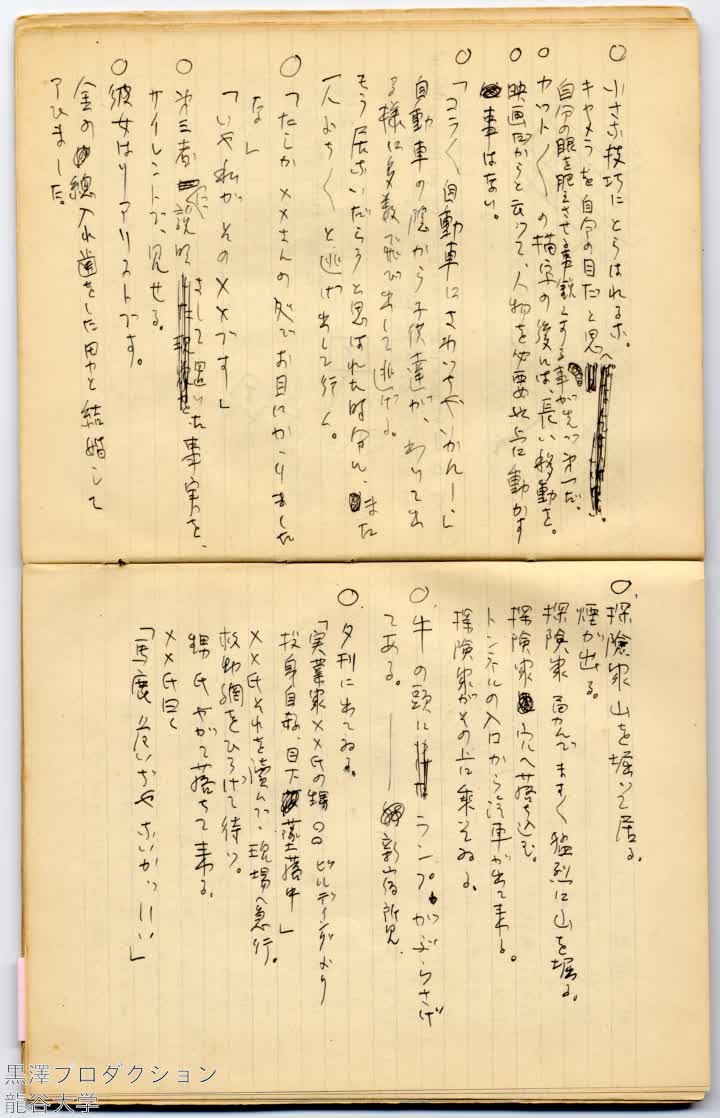 ○ 小さな技巧にとらはれるな。
キャメラを自分の目だと思へ。
自分の眼を肥えさせる事が先づ第一だ。
○ カット〱の描写の後には、長い移動を。
○ 映画だからと云って、人物を必要以上に動かす
事はない。
○ 「コラ〱自動車にさわいぢやいかんー」
自動車の陰から子供達が、わいて出
る様に多数飛び出して逃げる。
もう居ないだらうと思はれた時分に、また
一人おち〱と逃げ出して行く。
○ 「たしか××さんの処でお目にかゝりました
な」
「いや私がその××です」
○ 第三者に説明さして置いた事実を、
サイレントで、見せる。
○ 彼女はリアリストです。
金の総入れ歯をした男と結婚して
○ 探険家山を堀って居る。
煙が出る。
探険家 ます〱猛烈に山を堀る。
探険家穴へ落ち込む。
トンネルの入口から汽車が出て来る。
探険家がその上に乗ってゐる。
○ 牛の頭にランプがぶらさげ
てある。――新宿所見
○ 夕刊に出てゐる。
「実業家××氏の甥〇〇ビルディングより
投身自殺、目下墜落中」
××氏それを読んで、現場へ急行。
救助網をひろげて待つ。
甥氏やがて落ちて来る。
××氏曰く
「馬鹿 ぢやないかッ!!」
黒澤プロダクション
龍谷大学